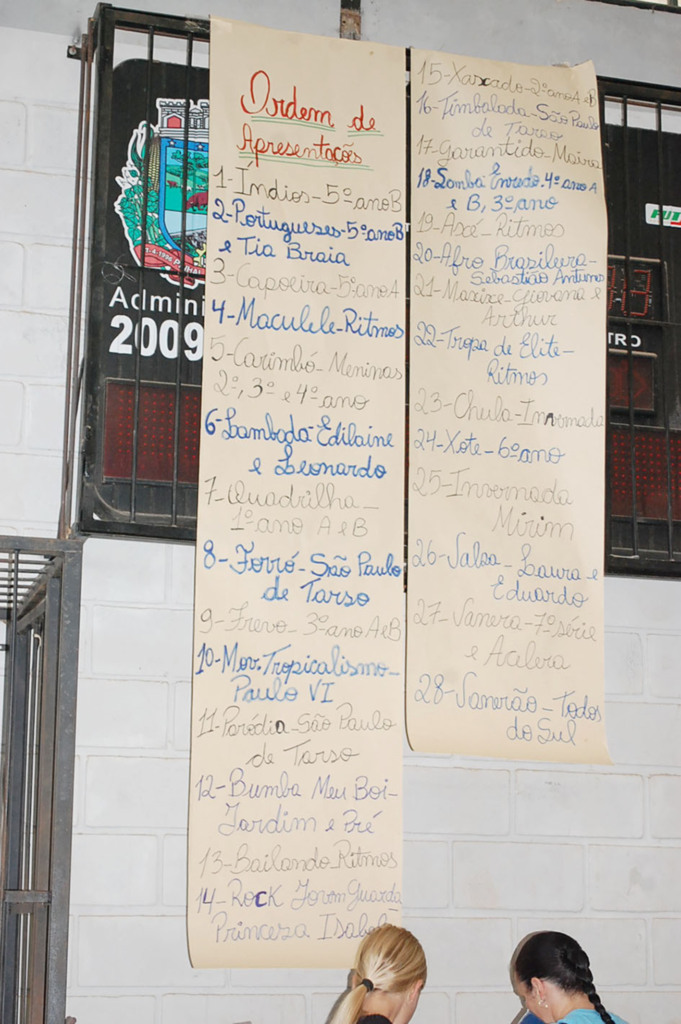 Ordem de
Apresentações
1-Índios-5º ano B
2-Portugueses-5º ano B
e Tia Braia
3-Capoeira-5º ano A
4-Maculele-Ritmos
5-Carimbó-Meninas
2º, 3º e 4º ano
6-Lambada-Edilaine
e Leonardo
7-Quadrilha-
1º ano A e B
8-Forró-São Paulo
de Tarso
9-Frevo-3º ano A e B
10-Mov. Tropicalismo-
Paulo VI
11-Paródia-São Paulo
de Tarso
12-Bumba Meu Boi-
Jardim e Pré
13-Bailando-Ritmos
14-Rock Jovem Guarda-
Princeza Isabel
15-Xaxado-2º ano A e B
16-Timbalada-São Paulo
de Tarso
17-Garantido-Maira
18-Samba Enredo-4º ano A
e B, 3º ano
19-Axé-Ritmos
20-Afro Brasileira-
Sebastião Antunes
21-Maxixe-Giovana e
Arthur
22-Tropa de Elite-
Ritmos
23-Chula-Invernada
24-Xote-6º ano
25-Invernada
Mirim
26-Salsa-Laura e
Eduardo
27-Vanera-7ª série
e Acalera
28-Vanerão-Todos
do Sul
Admini
2009